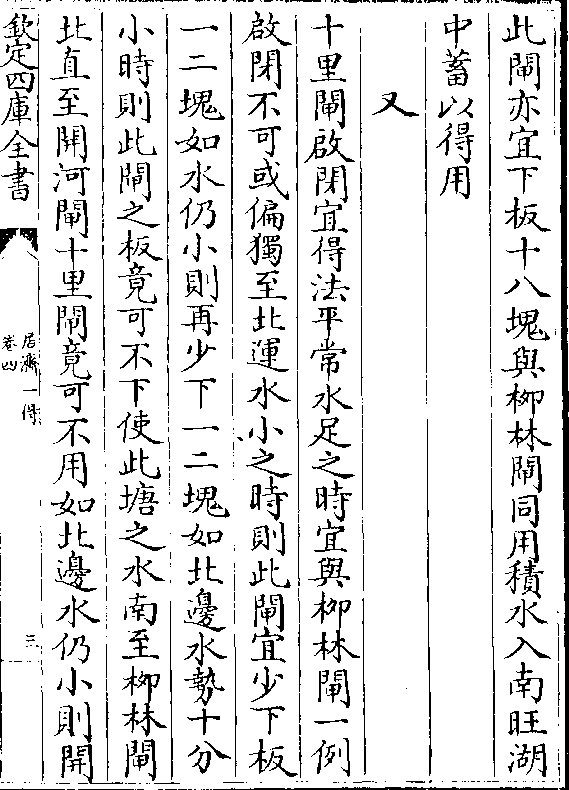 此閘亦宜下板十八塊與柳林閘同用積水入南旺湖
中蓄以得用
又
十里閘啟閉宜得法平常水足之時宜與柳林閘一例
啟閉不可或偏獨至北運水小之時則此閘宜少下板
一二塊如水仍小則再少下一二塊如北邊水勢十分
小時則此閘之板竟可不下使此塘之水南至柳林閘
北直至開河閘十里閘竟可不用如北邊水仍小則開
欽定四庫全書
居濟一得
卷四
三